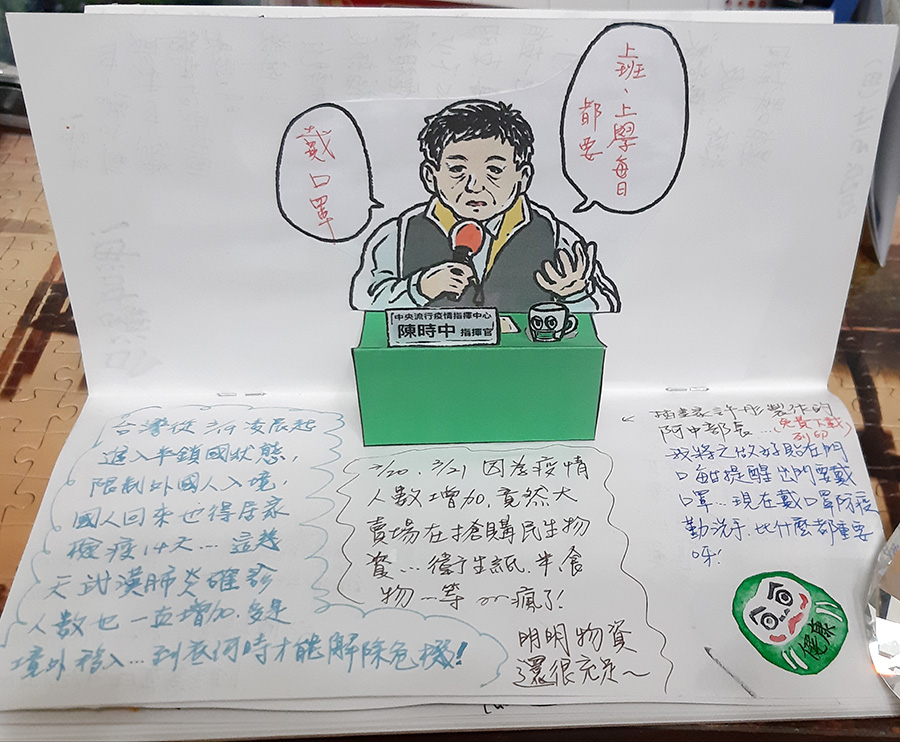 戴口罩
上班、上學每日
都要
中央流行疫情指揮中心
陳時中 指揮官
台灣從3/19凌晨起
進入半鎖國狀態,
限制外國人入境
國人回來也得居家
檢疫14天... 這幾
天武漢肺炎確診
人數也一直增加,多是
境外移入...到底何時才能解除危機!
3/20、3/21 因為疫情
人數增加,竟然大
賣場在搶購民生物
資...衛生紙、米、食
物一等 瘋了!
明明物資
還很充足~
插畫家許彤製作的
阿中部長...免費下載
列印
我將之做好貼在門
口 提醒出門要戴
口罩...現在戴口罩防疫
勤洗手,比什麼都重要
呀!
健康